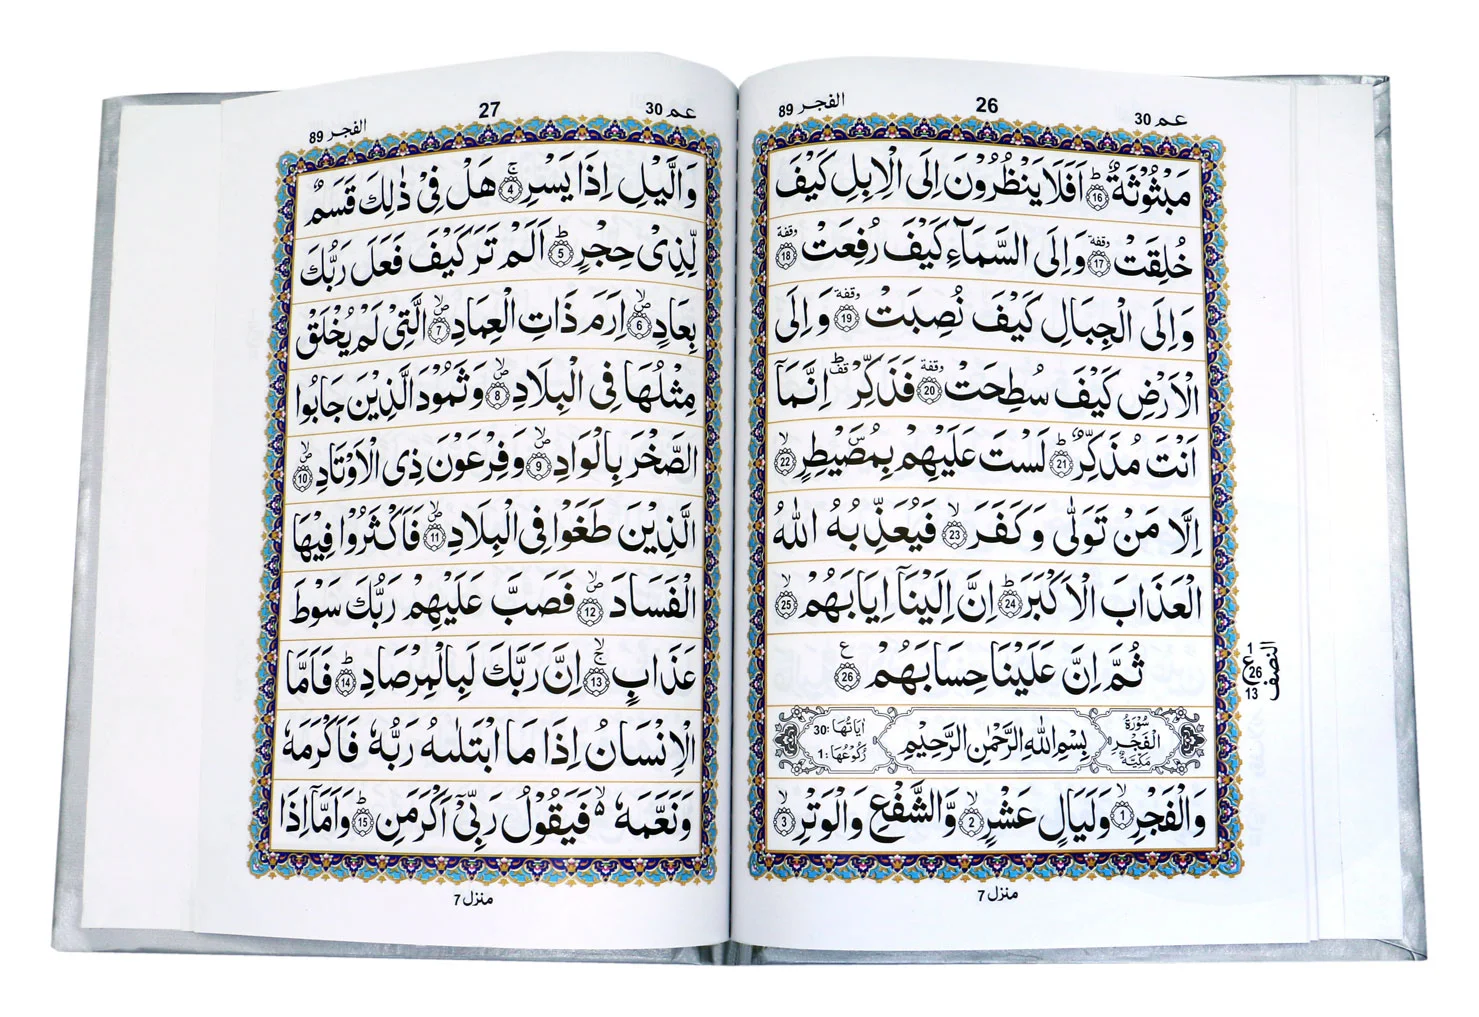 عم 30
26
الفجر 89
مَبْثُوْثَةٌ ؕ 16 اَفَلَا يَنْظُرُوْنَ اِلَى الْاِبِلِ كَيْفَ
خُلِقَتْ وقفة 17 وَ اِلَى السَّمَآءِ كَيْفَ رُفِعَتْ وقفة 18
وَ اِلَى الْجِبَالِ كَيْفَ نُصِبَتْ وقفة 19 وَ اِلَى
الْاَرْضِ كَيْفَ سُطِحَتْ وقفة 20 فَذَكِّرْ ؕ قف اِنَّمَاۤ
اَنْتَ مُذَكِّرٌ ؕ 21 لَسْتَ عَلَيْهِمْ بِمُصَۜيْطِرٍ ۙ 22
اِلَّا مَنْ تَوَلّٰى وَ كَفَرَ ۙ 23 فَيُعَذِّبُهُ اللّٰهُ
الْعَذَابَ الْاَكْبَرَ ؕ 24 اِنَّ اِلَيْنَاۤ اِيَابَهُمْ ۙ 25
ثُمَّ اِنَّ عَلَيْنَا حِسَابَهُمْ ع 26
النصف
1
ع
26
13
سُوْرَةُ الْفَجْرِ مَكِّيَّةٌ
بِسْمِ اللّٰهِ الرَّحْمٰنِ الرَّحِيْمِ
اٰيَاتُهَا: 30
رُكُوْعُهَا: 1
وَالْفَجْرِ ۙ 1 وَلَيَالٍ عَشْرٍ ۙ 2 وَّالشَّفْعِ وَالْوَتْرِ ۙ 3
منزل 7
عم 30
27
الفجر 89
وَالَّيْلِ اِذَا يَسْرِ ۚ 4 هَلْ فِىْ ذٰلِكَ قَسَمٌ
لِّذِىْ حِجْرٍ ؕ 5 اَلَمْ تَرَ كَيْفَ فَعَلَ رَبُّكَ
بِعَادٍ ۙ ۪ 6 اِرَمَ ذَاتِ الْعِمَادِ ۙ ۪ 7 الَّتِىْ لَمْ يُخْلَقْ
مِثْلُهَا فِى الْبِلَادِ ۙ ۪ 8 وَثَمُوْدَ الَّذِيْنَ جَابُوا
الصَّخْرَ بِالْوَادِ ۙ ۪ 9 وَفِرْعَوْنَ ذِى الْاَوْتَادِ ۙ ۪ 10
الَّذِيْنَ طَغَوْا فِى الْبِلَادِ ۙ ۪ 11 فَاَكْثَرُوْا فِيْهَا
الْفَسَادَ ۙ ۪ 12 فَصَبَّ عَلَيْهِمْ رَبُّكَ سَوْطَ
عَذَابٍ ۚ ۙ 13 اِنَّ رَبَّكَ لَبِالْمِرْصَادِ ؕ 14 فَاَمَّا
الْاِنْسَانُ اِذَا مَا ابْتَلٰىهُ رَبُّهٗ فَاَكْرَمَهٗ
وَنَعَّمَهٗ ۙ۬ فَيَقُوْلُ رَبِّىْۤ اَكْرَمَنِ ؕ 15 وَاَمَّاۤ اِذَا
منزل 7